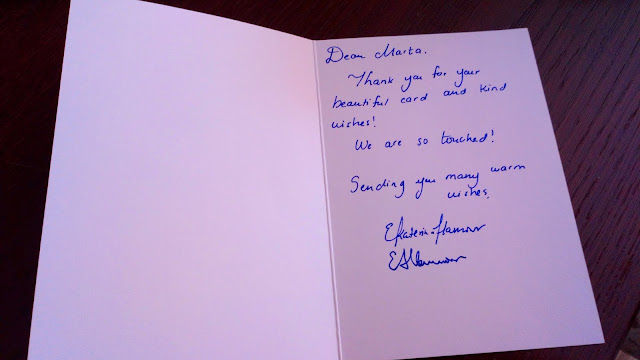 Dear Marta,
Thank you for your
beautiful card and kind
wishes!
We are so touched!
Sending you many warm
wishes,
Ekaterina